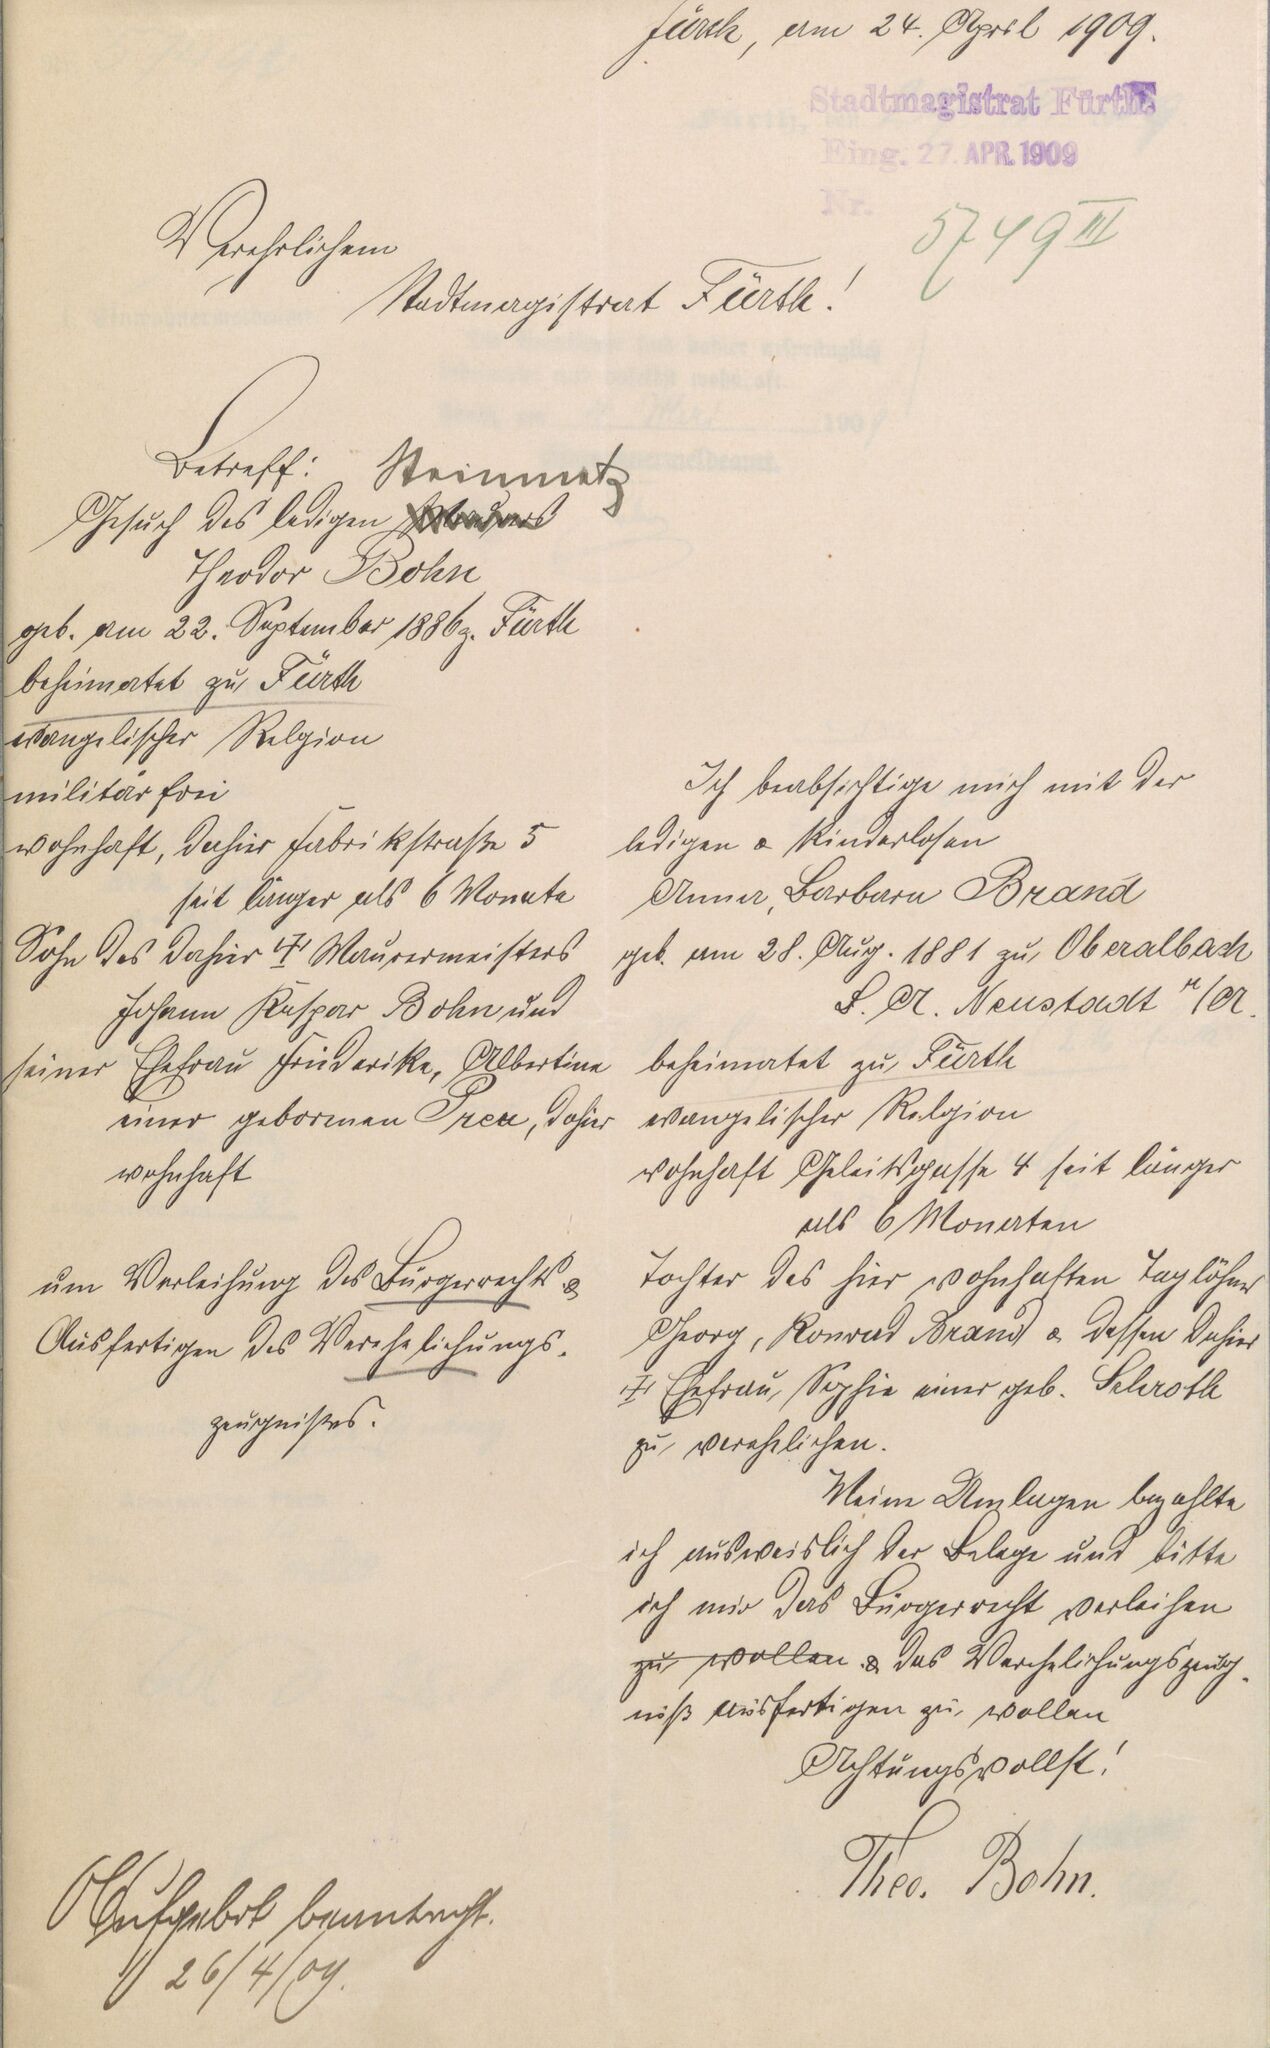 Fürth, am 24. April 1909.
Stadtmagistrat Fürth
Eing. 27. APR. 1909
Nr.
5749 III
Verehrlichem
Stadtmagistrat Fürth!
Betreff: Steinmetz
Gesuch des ledigen
Theodor Bohn
geb. am 22. September 1886 z. Fürth
beheimatet zu Fürth
evangelischer Relgion
militärfrei
wohnhaft, dahier Fabrikstraße 5
seit länger als 6 Monate
Sohn des dahier † Maurermeisters
Johann Kaspar Bohn und
seiner Ehefrau Friederike, Albertine
einer gebornen Preu, dahier
wohnhaft
um Verleihung des Bürgerrechts &
Ausfertigen des Verehelichungs-
zeugnisses.
Ich beabsichtige mich mit der
ledigen & kinderlosen
Anna, Barbara Brand
geb. am 28. Aug. 1881 zu Oberalbach
B. A. Neustadt a/A.
beheimatet zu Fürth
evangelischer Relgion
wohnhaft Geleitsgasse 4 seit länger
als 6 Monaten
Tochter des hier wohnhaften Taglöhner
Georg, Konrad Brand & dessen dahier
† Ehefrau, Sophie einer geb. Schroth
zu verehelichen.
Meine Umlagen bezahlte
ich ausweislich der Belege und bitte
ich mir das Bürgerrecht verleihen
zu wollen & das Verehelichungszeug-
niß ausfertigen zu wollen
Achtungsvollst!
Theo. Bohn.
Aufgebot beantragt.
26/4/09.